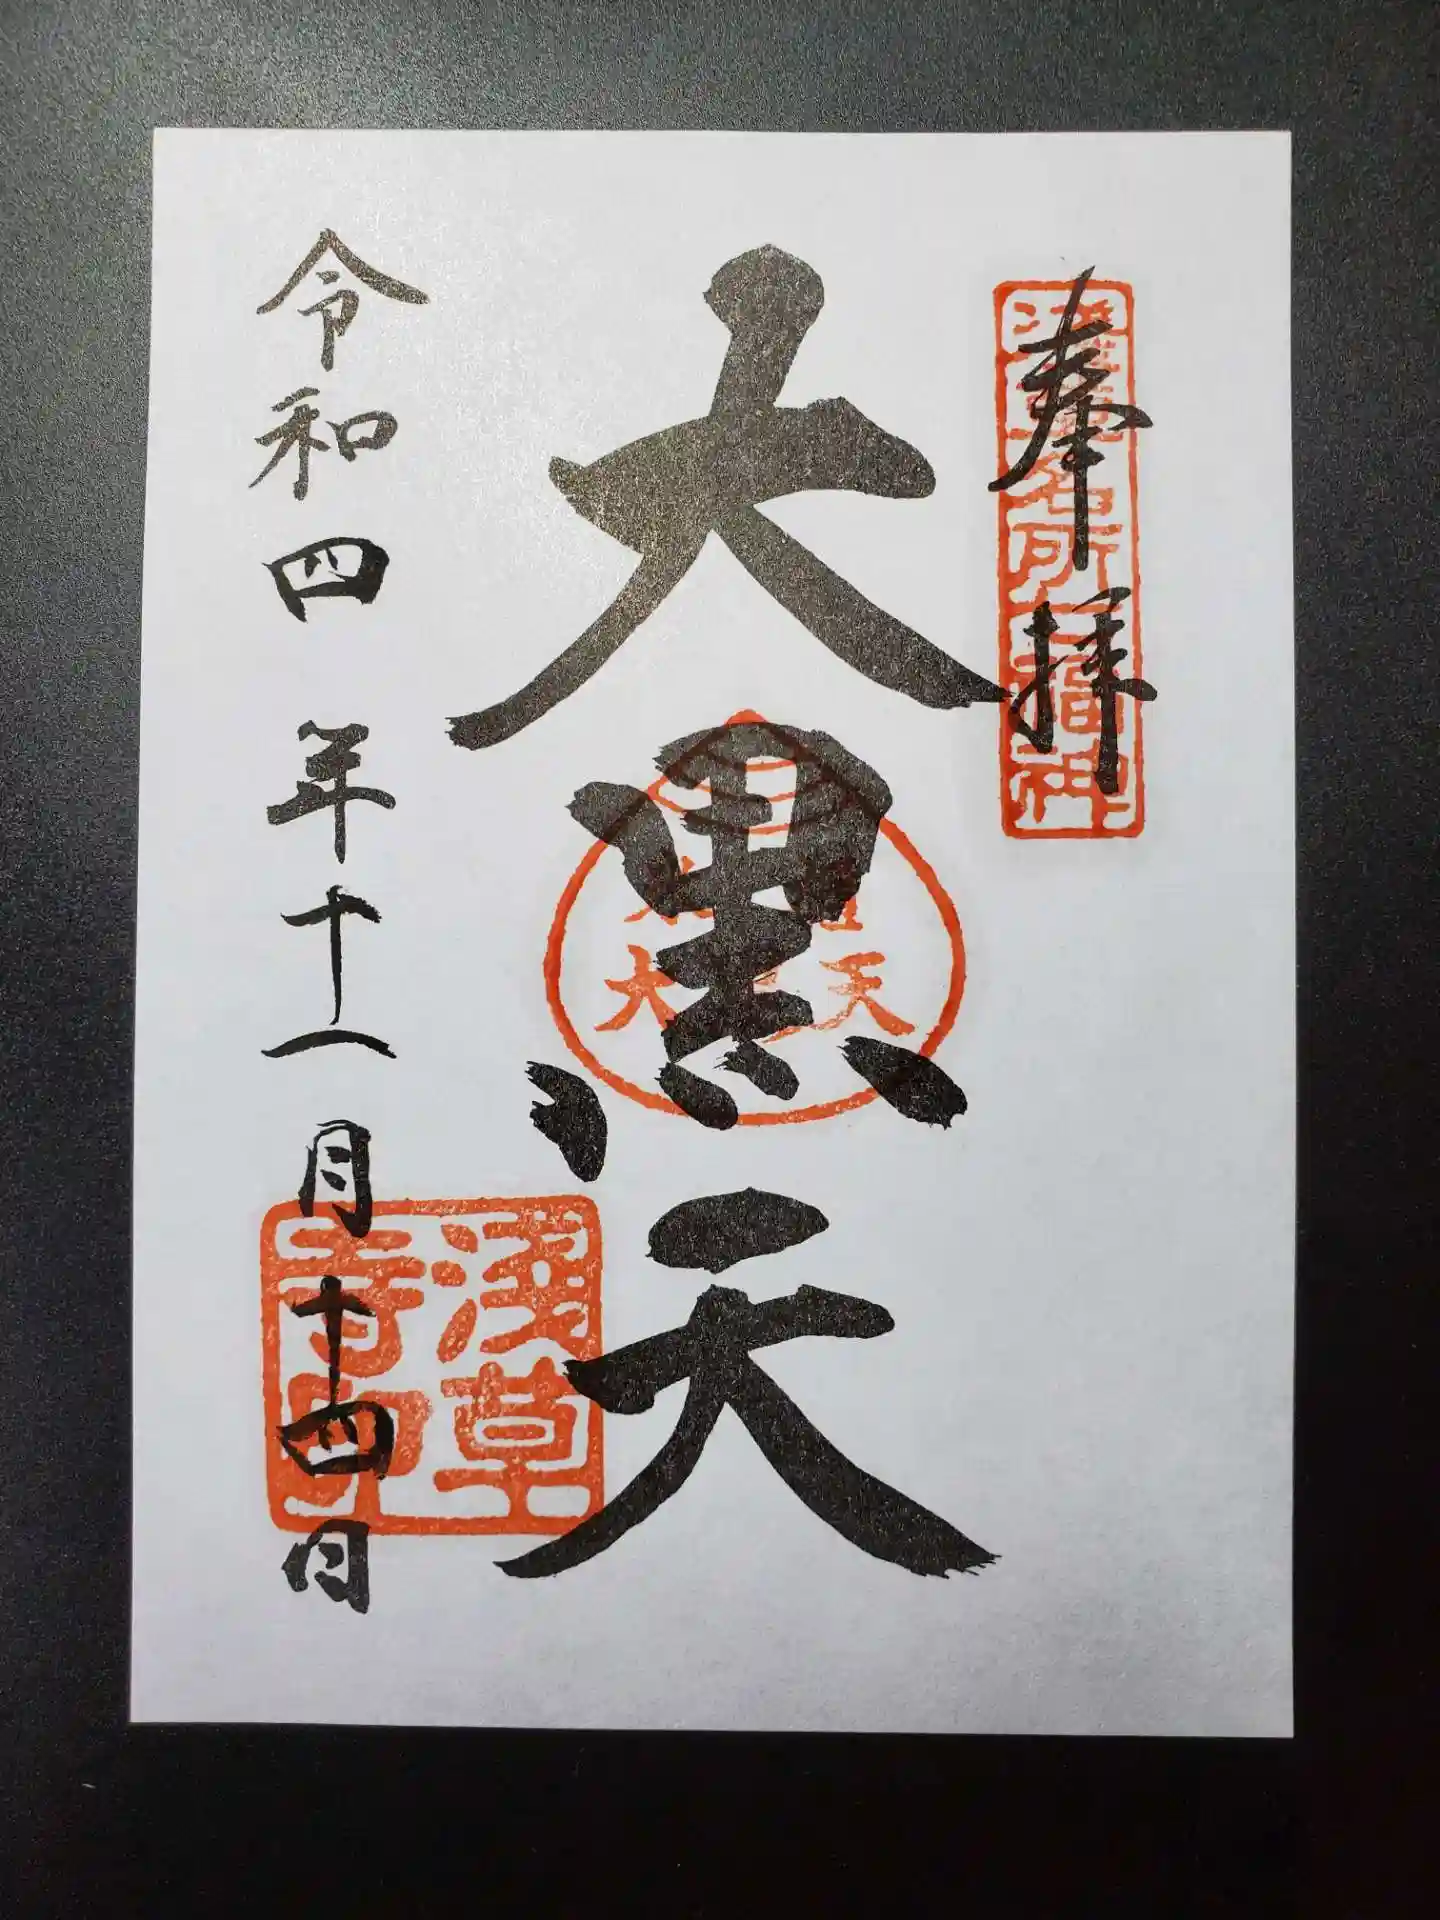 奉拝
浅草名所七福神
大黒天
大黒天
令和四年十一月十四日
浅草
寺印